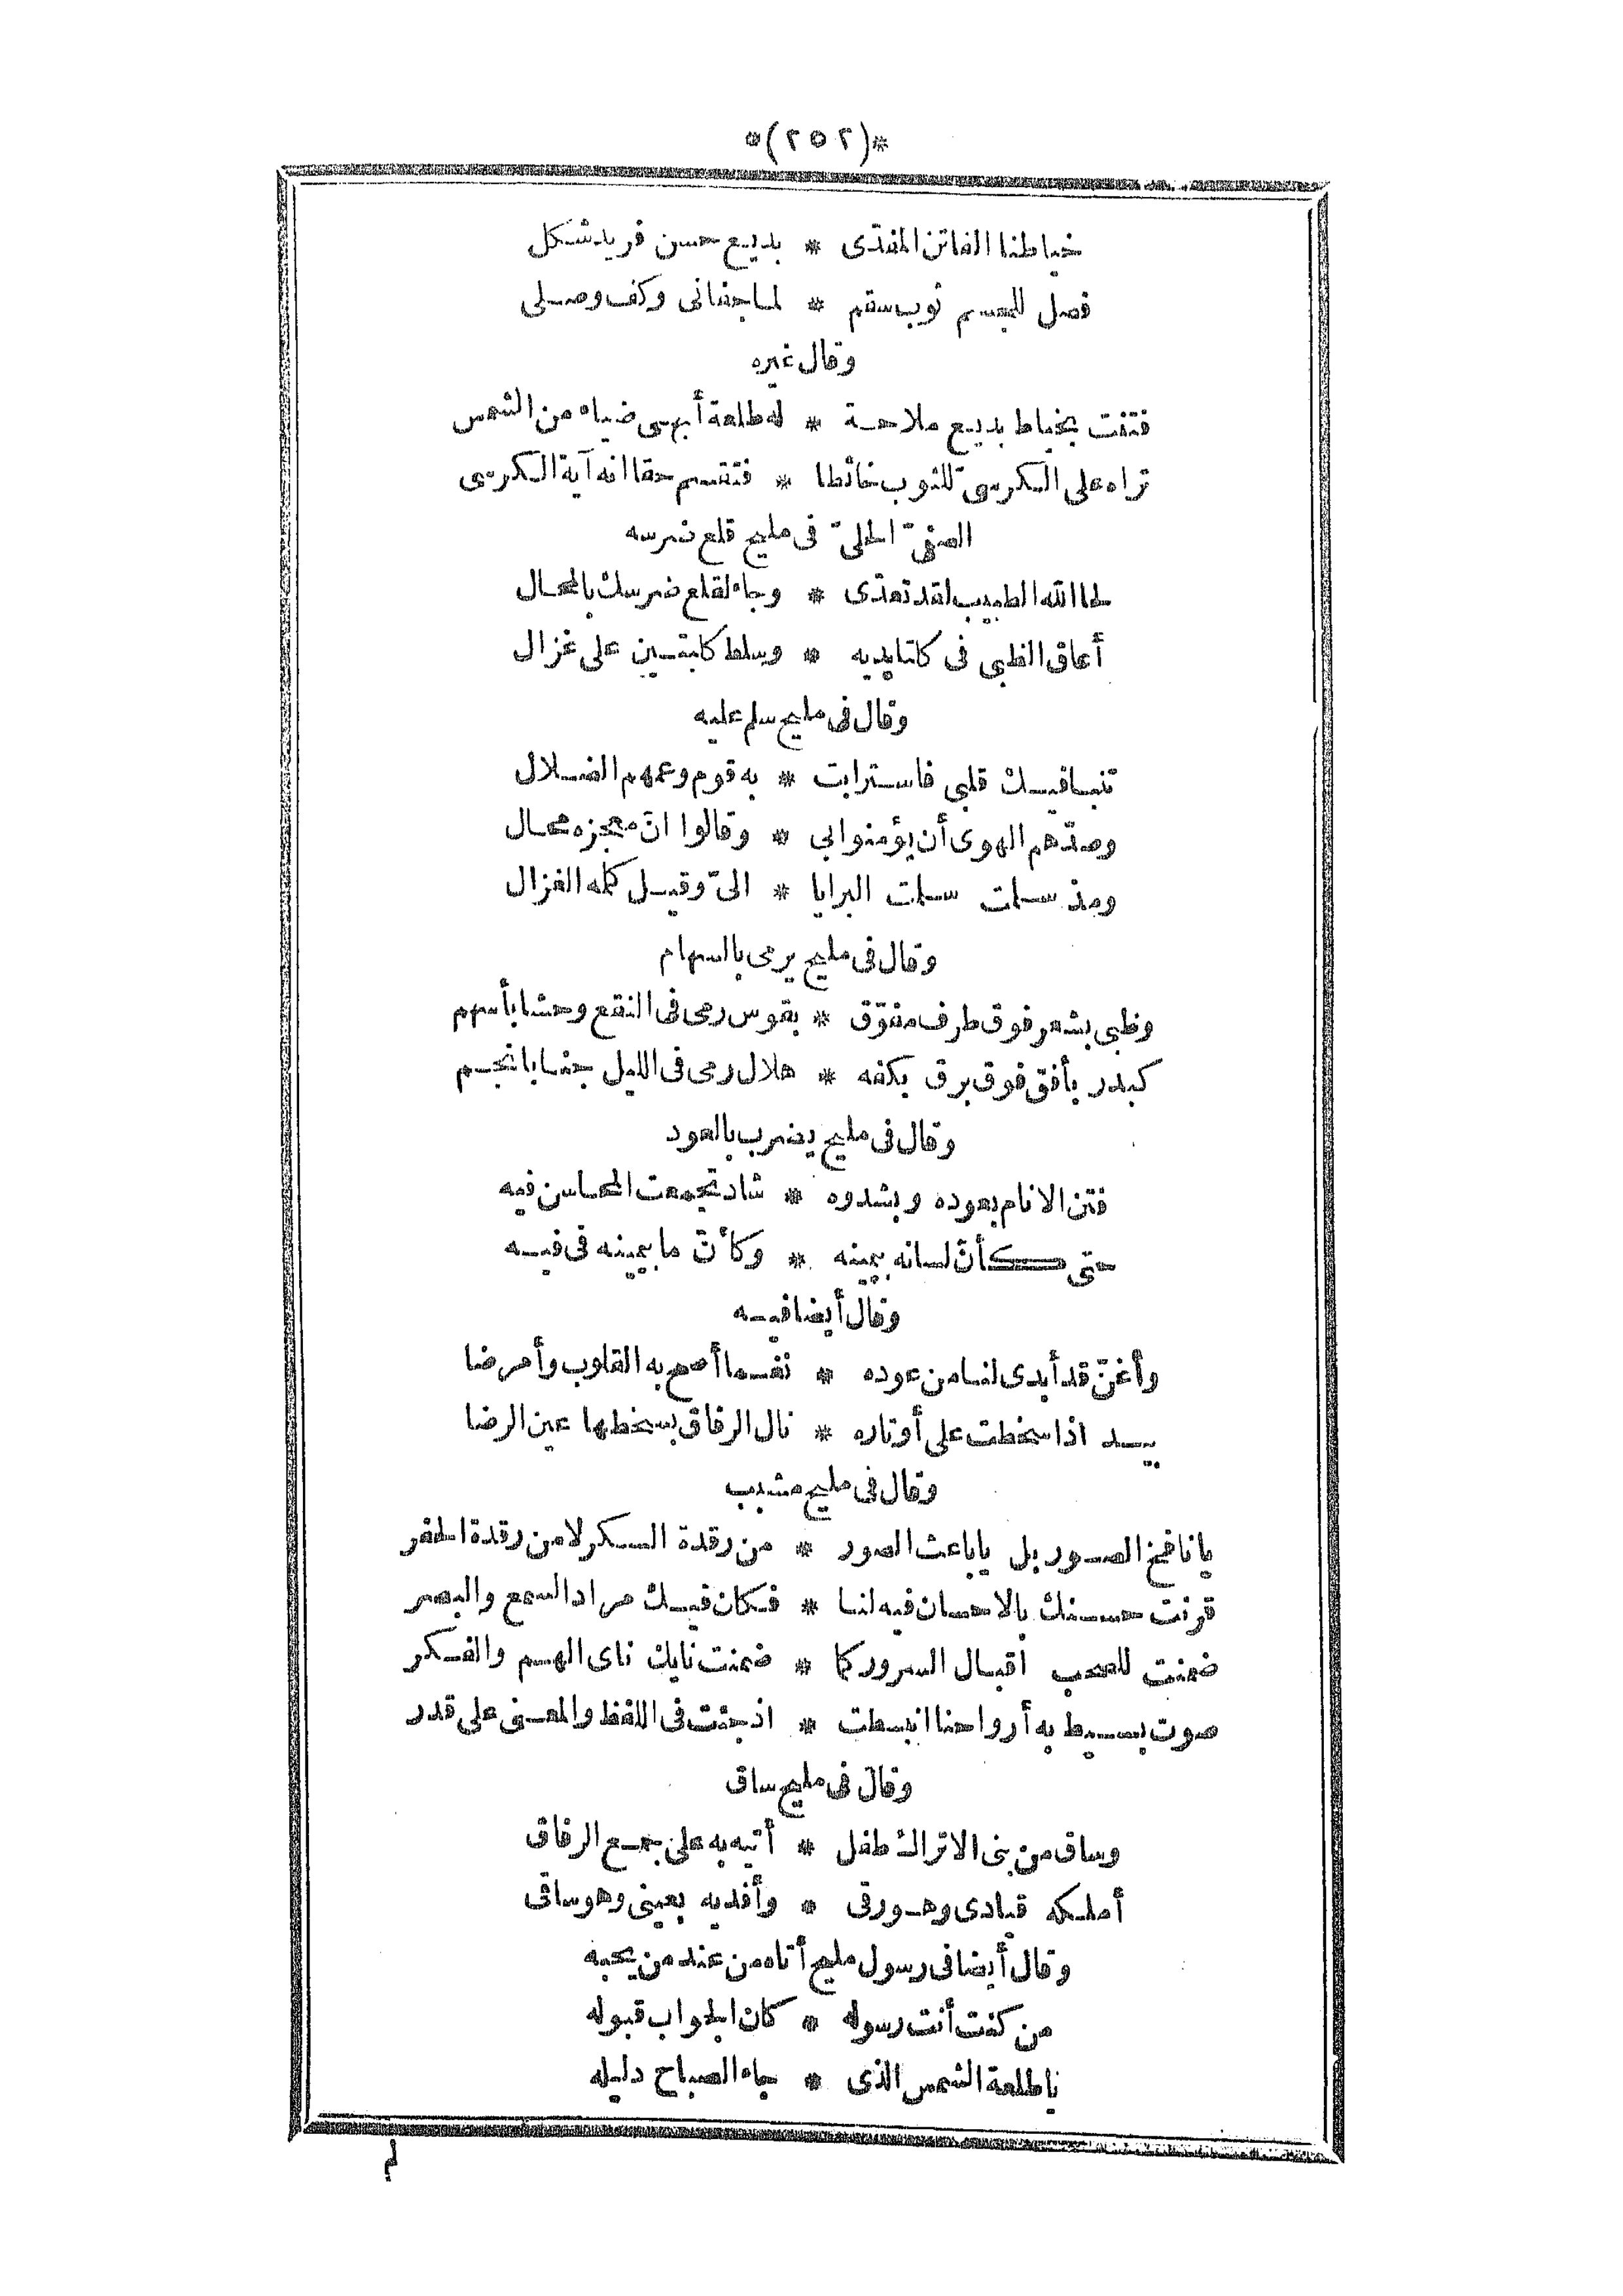 *(٢٥٢)*
خياطنا الفاتن المفدّى * بديع حسن فريد شكل
فصل للجسم ثوب سقم * لما جفانى وكف وصلى
وقال غيره
فتنت بخياط بديع ملاحة * له طلعة أبهى ضياء من الشمس
تراه على الكرسىّ للثوب خائطا * فتقسم حقا انه آية الكرسى
الصفىّ الحلىّ فى مليح قلع ضرسه
لحا الله الطبيب لقد تعدّى * وجاء لقلع ضرسك بالمحال
أعاق الظبى فى كلتا يديه * وسلط كلبتين على غزال
وقال فى مليح سلم عليه
تنبا فيك قلبى فاسترابت * به قوم وعمهم الضلال
وصدّهم الهوى أن يؤمنوا بى * وقالوا انّ معجزه محال
ومذ سلمت سلمت البرايا * الىّ وقيل كلمه الغزال
وقال فى مليح يرمى بالسهام
وظبى بشعر فوق طرف مفوّق * بقوس رمى فى النقع وحشا بأسهم
كبدر بأفق فوق برق بكفه * هلال رمى فى الليل جنا بانجم
وقال فى مليح يضرب بالعود
فتن الانام بعوده وبشدوه * شاد تجمعت المحاسن فيه
حتى كأنّ لسانه بيمينه * وكأنّ ما بيمينه فى فيه
وقال أيضا فيه
وأغنّ قد أبدى لنا من عوده * نغما أصح به القلوب وأمرضا
بيد اذا سخطت على أوتاره * نال الرفاق بسخطها عين الرضا
وقال فى مليح مشبب
يا نافخ الصور بل يا باعث الصور * من رقدة السكر لا من رقدة الحفر
قرنت حسنك بالاحسان فيه لنا * فكان فيك مراد السمع والبصر
ضمنت للصحب اقبال السرور كما * ضمنت نايك ناى الهم والفكر
صوت بسيط به أرواحنا انبسطت * اذ جئت فى اللفظ والمعنى على قدر
وقال فى مليح ساق
وساق من بنى الاتراك طفل * أتيه به على جمع الرفاق
أملكه قيادى وهو رقى * وأفديه بعينى وهو ساقى
وقال أيضا فى رسول مليح أتاه من عند من يحبه
من كنت أنت رسوله * كان الجواب قبوله
يا طلعة الشمس الذى * جاء الصباح دليله
لم